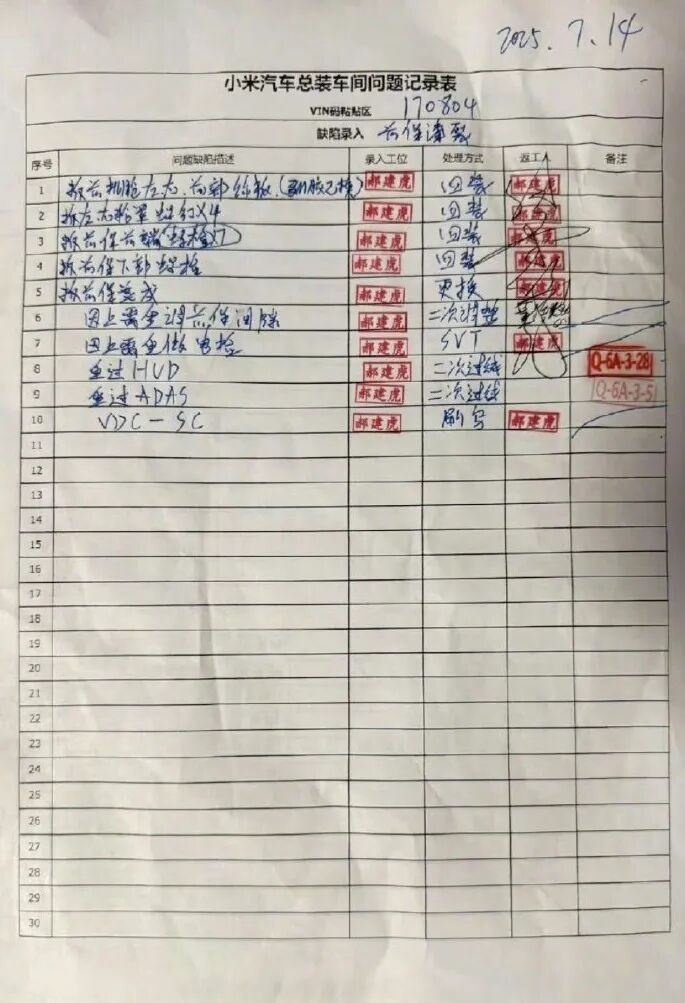 2025.7.14
小米汽车总装车间问题记录表
VIN码粘贴区 170804
缺陷录入 前保漆裂
序号 问题缺陷描述 录入工位 处理方式 返工人 备注
1 拆前机舱左右、前部饰板 郝建虎 回装 郝建虎
2 拆左右轮罩螺钉X4 郝建虎 回装 郝建虎
3 拆前保前端(螺栓X7) 郝建虎 回装 郝建虎
4 拆前保下部螺栓 郝建虎 回装 郝建虎
5 拆前保总成 郝建虎 更换 郝建虎
6 因上需重调前保间隙 郝建虎 二次调整
7 因上需重做电检 郝建虎 SVT 郝建虎
8 重过HUD 郝建虎 二次过线 Q-6A-3-28
9 重过ADAS 郝建虎 二次过线 Q-6A-3-5
10 VDC-SC 郝建虎 刷写 郝建虎
11
12
13
14
15
16
17
18
19
20
21
22
23
24
25
26
27
28
29
30